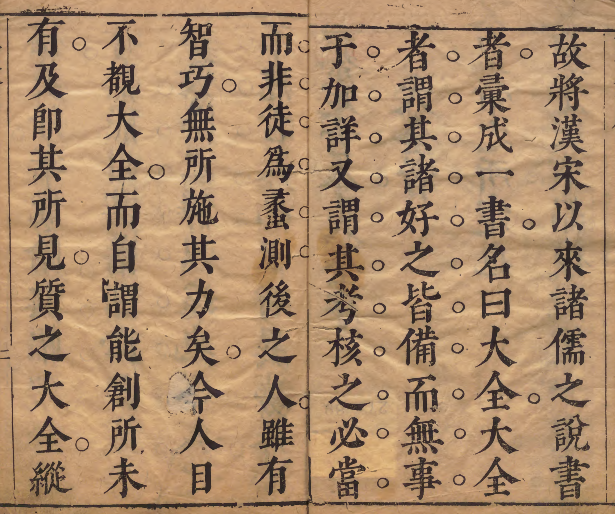 故將漢宋以來諸儒之說書
者彙成一書名曰大全大全
者謂其諸好之皆備而無事
于加詳又謂其考核之必當
而非徒為蠡測後之人雖有
智巧無所施其力矣今人目
不覩大全而自謂能創所未
有及卽其所見質之大全縱